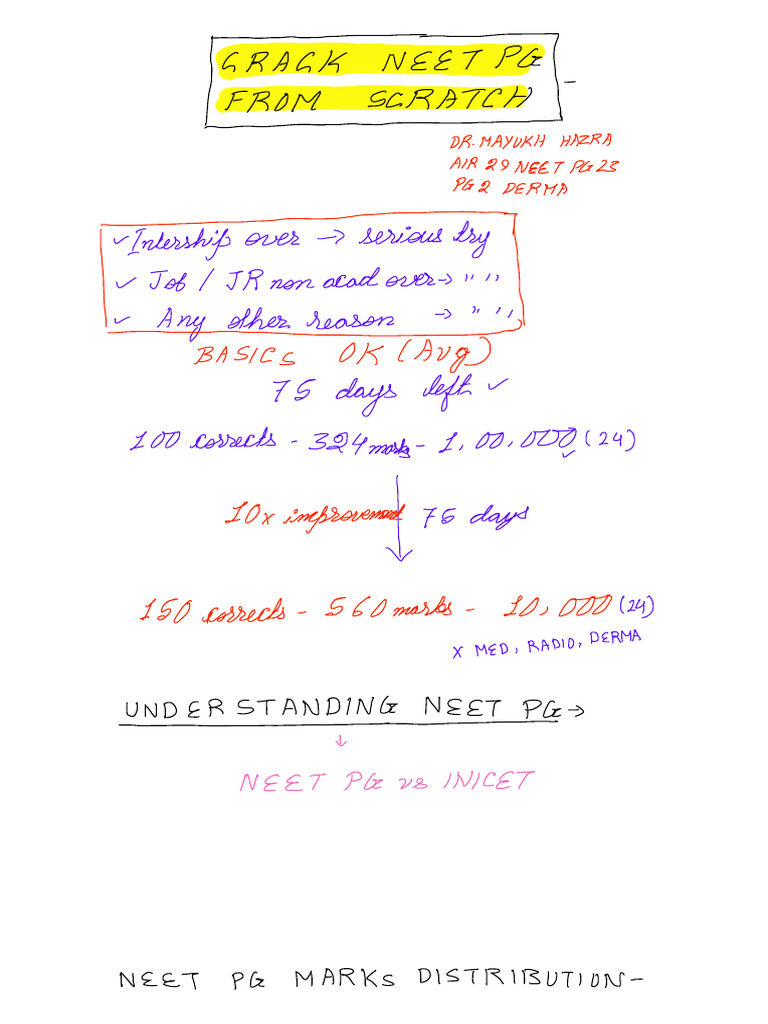 CRACK NEET PG
FROM SCRATCH -
DR. MAYUKH HAZRA
AIR 29 NEET PG 23
PG 2 DERMA
✓ Intership over → serious try
✓ Job / JR non acad over → " "
✓ Any other reason → " "
BASICS OK (Avg)
75 days left ✓
100 corrects - 324 marks - 1,00,000 (24)
✓
10x improvement 75 days
150 corrects - 560 marks - 10,000 (24)
x MED, RADIO, DERMA
UNDERSTANDING NEET PG →
↓
NEET PG vs INICET
NEET PG MARKS DISTRIBUTION -